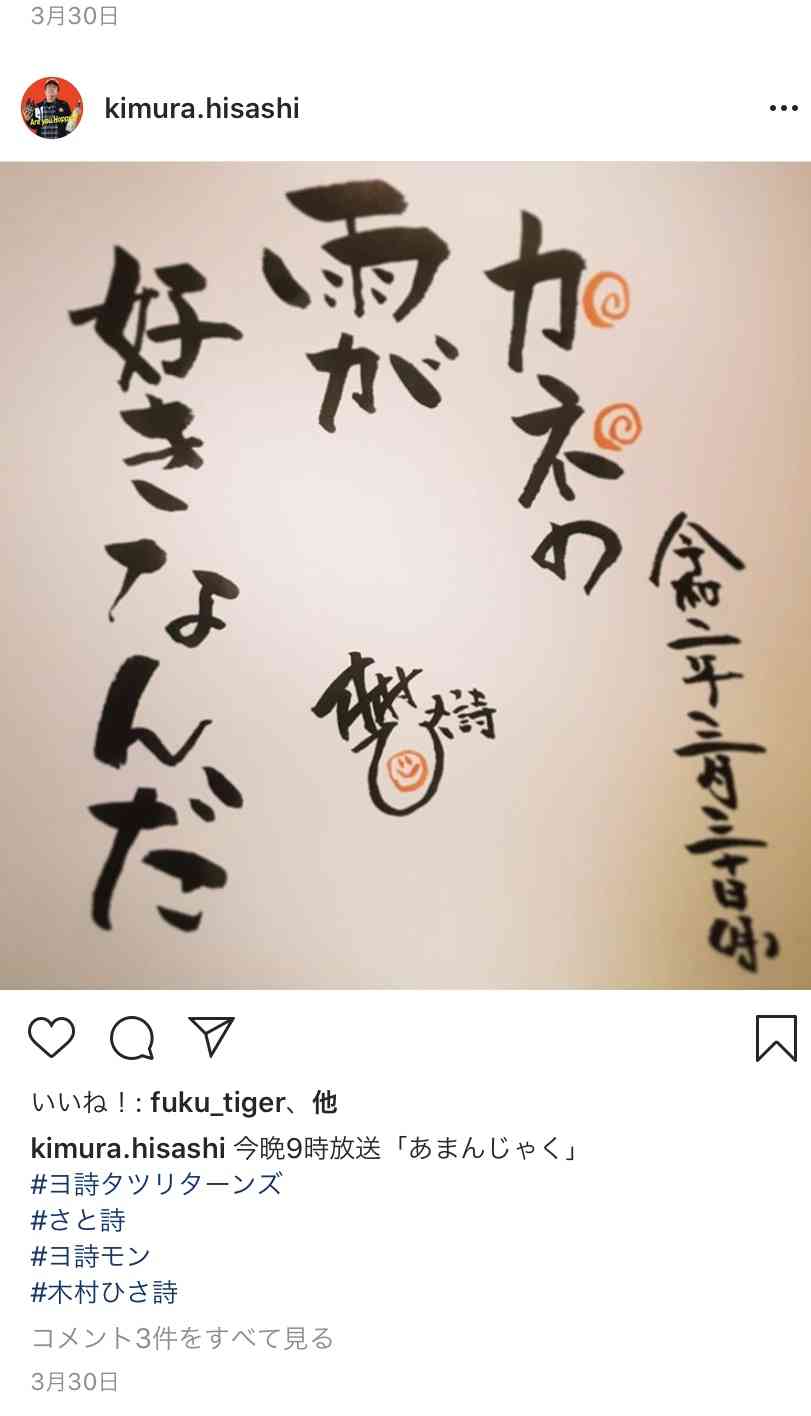 3月30日
kimura.hisashi
カネの
雨が
好きなんだ
令和二年三月三十日
詩
いいね！: fuku_tiger、他
kimura.hisashi 今晩9時放送「あまんじゃく」
#ヨ詩タツリターンズ
#さと詩
#ヨ詩モン
#木村ひさ詩
コメント3件をすべて見る
3月30日